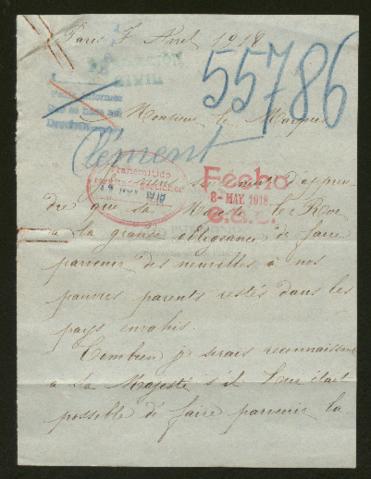 Paris 7 Avril 1918
55786
Monsieur le Marquis
Clément
Transmitido
Fecho
8-MAY.1918
d'appren
dre que Sa Majesté le Roi
a la grande obligeance de faire
parvenir des nouvelles à nos
pauvres parents restés dans les
pays envahis.
Combien je serais reconnaissante
à Sa Majesté s'il Leur était
possible de faire parvenir la